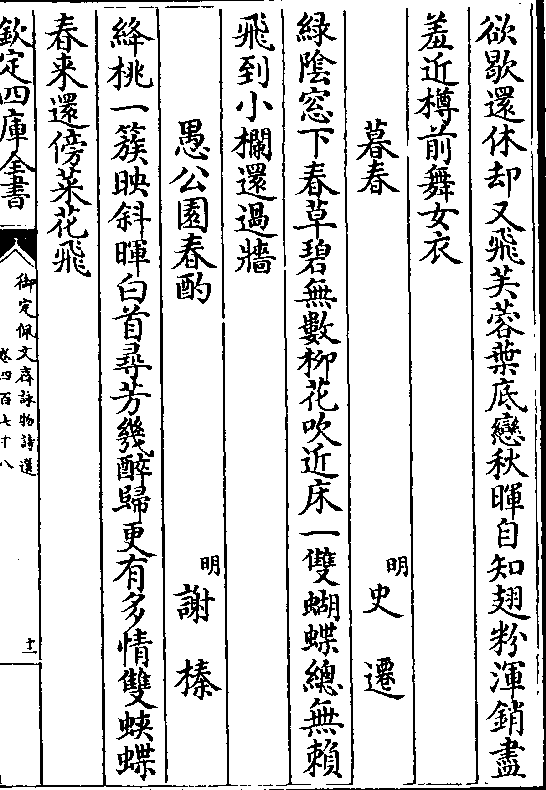 欲歇還休却又飛芙蓉葉底戀秋暉自知翅粉渾銷盡
羞近樽前舞女衣
暮春
明史遷
綠陰窓下春草碧無數柳花吹近床一雙蝴蝶總無賴
飛到小欄還過牆
愚公園春酌
明謝榛
絳桃一簇映斜暉白首尋芳幾醉歸更有多情雙蛺蝶
春来還傍菜花飛
欽定四庫全書
御定佩文齋詠物詩選
卷四百七十八
十一